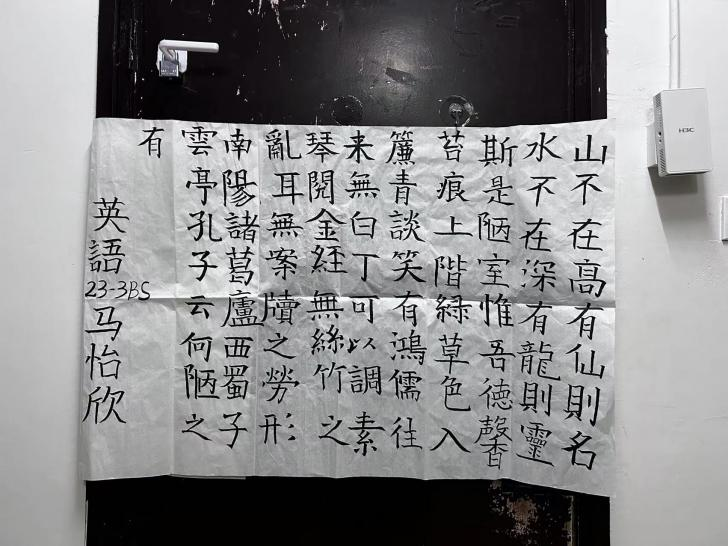 山不在高有仙則名
水不在深有龍則靈
斯是陋室惟吾德馨
苔痕上階緑草色入
簾青談笑有鴻儒往
来無白丁可以調素
琴閱金經無絲竹之
亂耳無案牘之勞形
南陽諸葛廬西蜀子
雲亭孔子云何陋之
有
英語23-3BS马怡欣
H3C